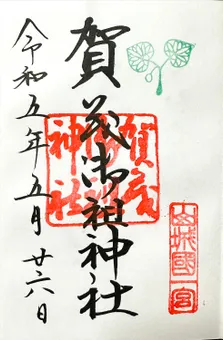 賀茂御祖神社
賀茂
御祖
神社
山城國一宮
令和五年五月廿六日